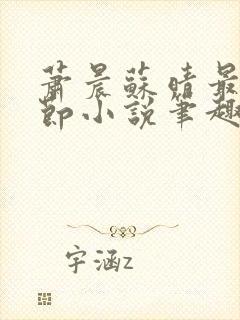 萧晨苏晴最
节小说笔趣
宇涵z